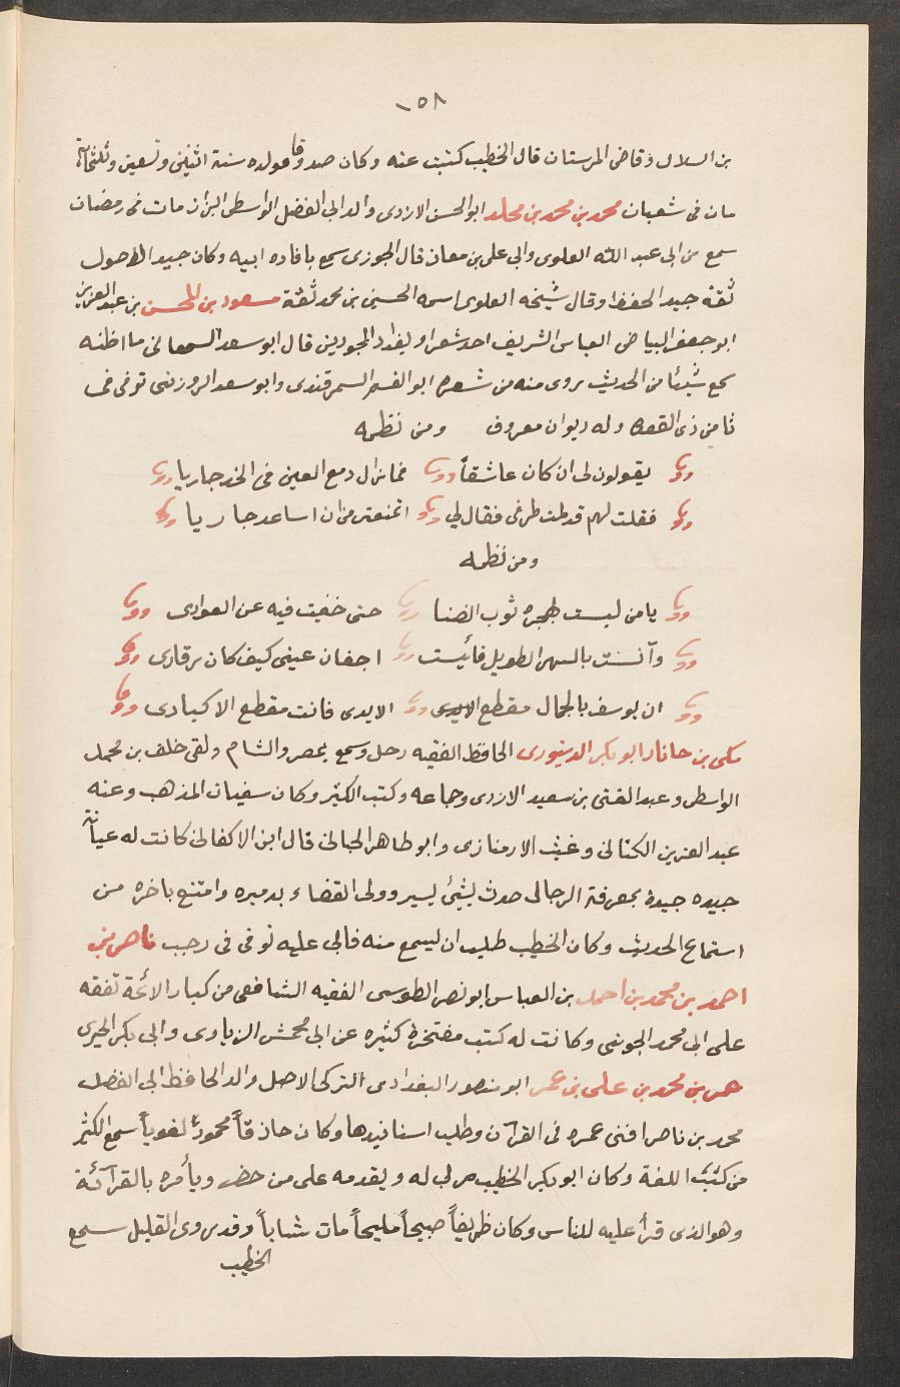 ١٥٨
بن السلال وقاضى المرستان قال الخطيب كتبت عنه وكان صدوقا مولده سنة اثنين وتسعين وثلثمائة
مات فى شعبان محمد بن محمد بن مخلد ابو الحسن الازدى والد ابى الفضل الواسطى البزاز مات فى رمضان
سمع من ابى عبد الله العلوى وابى على بن معاذ قال الجوزى سمع بافاده ابيه وكان جيد الاصول
ثقة جيد الحفظ وقال شيخه العلوى اسمه الحسين بن محمد ثقة مسعود بن المحسن بن عبد العزيز
ابو جعفر البياضى العباسى الشريف احد شعراء بغداد المجودين قال ابو سعد السمعانى ما اظنه
سمع شيئا من الحديث روى منه من شعره ابو القسم السمرقندى وابو سعد الزوزنى توفى فى
ثامن ذى القعدة وله ديوان معروف ومن نظمه
يقولون لى ان كان عاشقاً فما زال دمع العين فى الخد جاريا
فقلت لهم قد لمت طرفى فقال لي اتمنعنى من ان اساعد جاريا
ومن نظمه
يا من لبست لهجره ثوب الضنا حتى خفيت فيه عن العوادى
وآنست بالسهر الطويل فأنسيت اجفان عينى كيف كان رقادى
ان يوسف بالجمال مقطع الايدى الايدى فانت مقطع الاكبادى
مكى بن جابار ابو بكر الدينورى الحافظ الفقيه رحل وسمع بمصر والشام ولقى خلف بن محمد
الواسطى وعبد الغنى بن سعيد الازدى وجماعه وكتب الكثير وكان سفيان المذهب وعنه
عبد العزيز الكتانى وغيث الارمنازى وابو طاهر الحبانى قال ابن الاكفانى كانت له عناية
جيده جيدة بمعرفة الرجال حدث بشئ يسير وولى القضاء بدميره وامتنع باخره من
استماع الحديث وكان الخطيب طلب ان يسمع منه فابى عليه توفى فى رجب ناصر بن
احمد بن محمد بن احمد بن العباس ابو نصر الطوسى الفقيه الشافعى من كبار الائمة تفقه
على ابى محمد الجوينى وكانت له كتب مفتخرة كثيره عن ابى محمش الزيادى وابى بكر الحيرى
عمر بن محمد بن على بن عمر ابو منصور البغدادى التركى الاصل والد الحافظ ابى الفضل
محمد بن ناصر افنى عمره فى القرآن وطلب اسانيدها وكان حاذقاً مجوداً لغوياً سمع الكثير
من كتب اللغة وكان ابو بكر الخطيب يرى له ويقدمه على من حضر ويأمره بالقرآئة
وهو الذى قرأ عليه للناس وكان ظريفاً صبيحاً مليحاً مات شاباً وقد روى القليل سمع
الخطيب